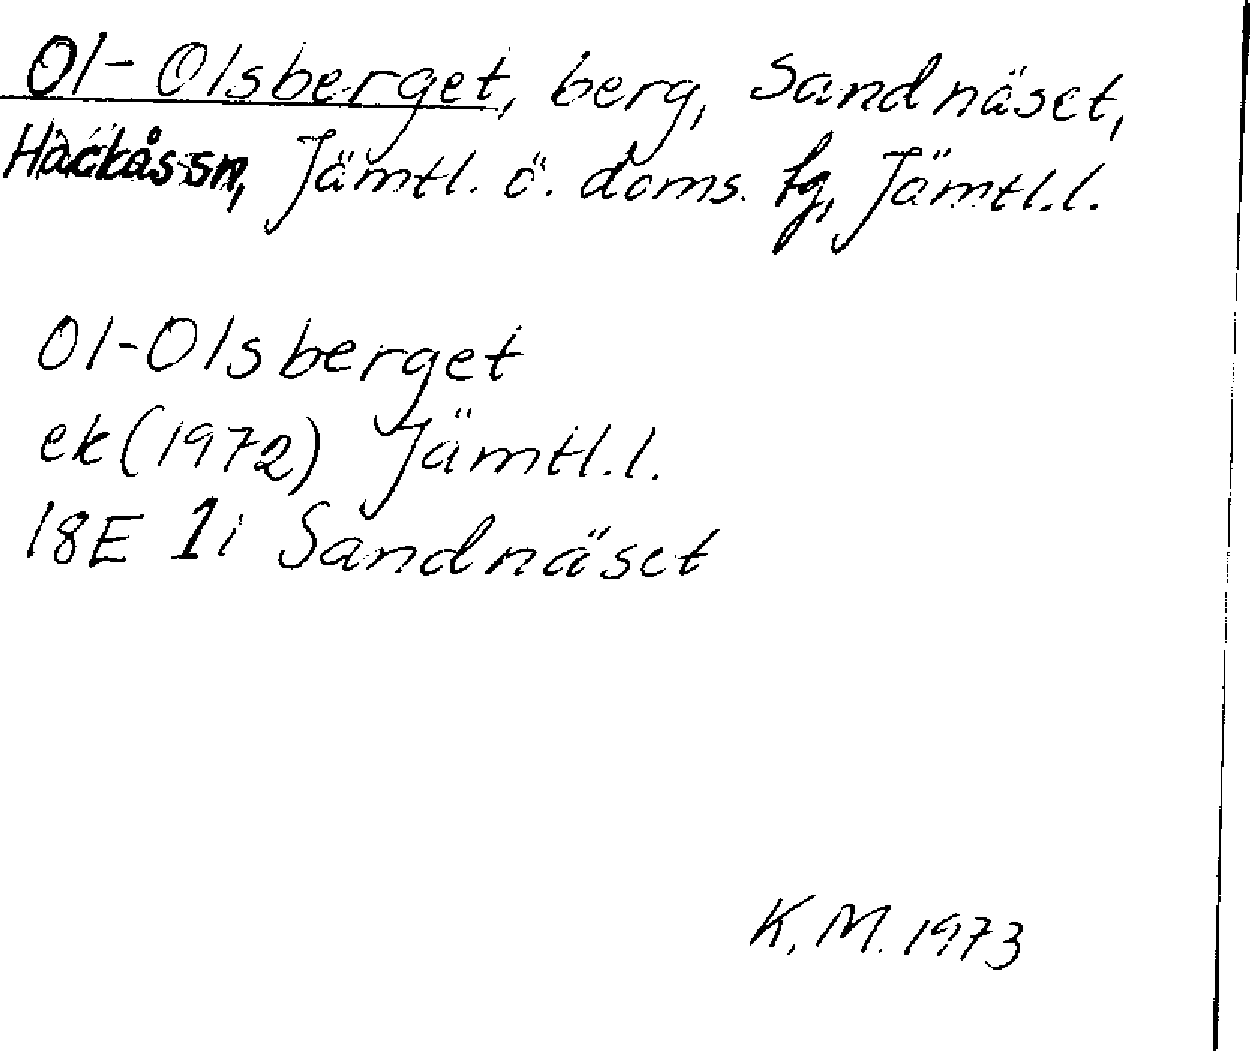 Ol-Olsberget, berg, Sandnäset,
Hackås sn, Jämtl. ö. doms. fg, Jämtl.l.
Ol-Olsberget
ek (1972) Jämtl.l.
18E 1i Sandnäset
K.M. 1973